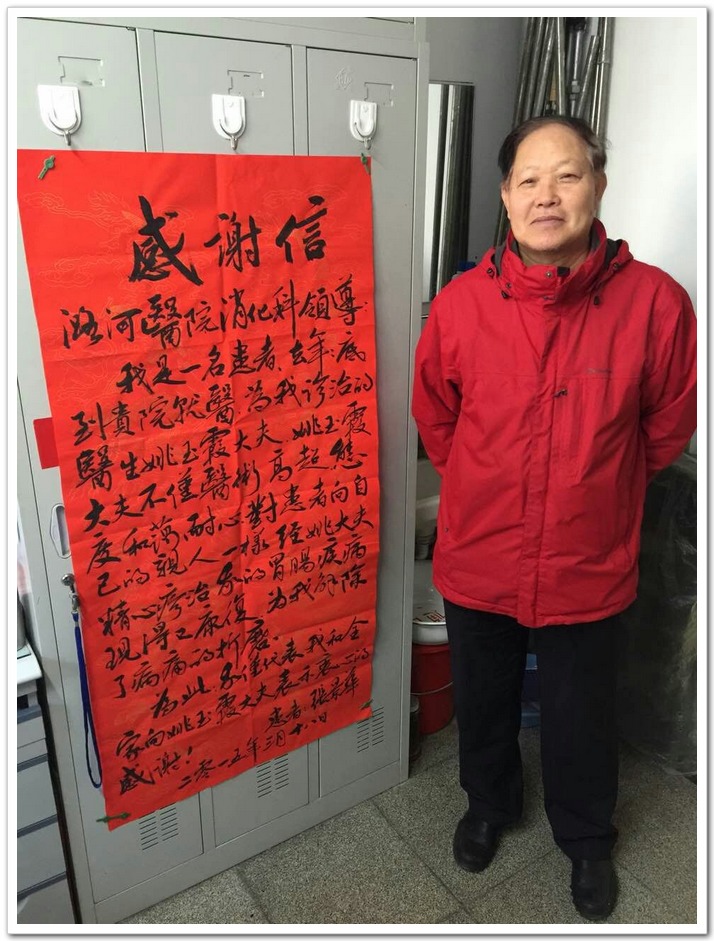 感謝信
潞河醫院消化科領導:
我是一名患者,去年底
到貴院就醫,為我诊治的
醫生姚玉霞大夫,姚玉霞
大夫不僅醫術高超,態
度和蔼,耐心對患者向自
己的親人一様,经姚大夫
精心疹治 的胃腸疾病
現得已康復,為我解除
了病痛的折磨。
為此, 僅代表我和全
家向姚玉霞大夫表示衷心的
感谢!
患者:张
二零一五年三月十八日